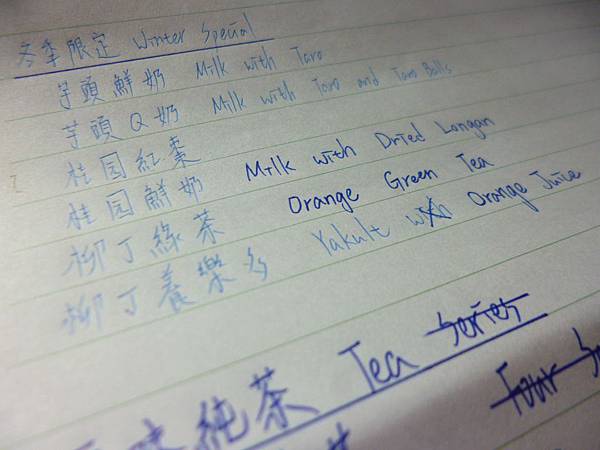 冬季限定 Winter Special
芋頭鮮奶 Milk with Taro
芋頭Q奶 Milk with Taro and Taro Balls
桂园紅棗
桂园鮮奶 Milk with Dried Longan
柳丁綠茶 Orange Green Tea
柳丁養樂多 Yakult with Orange Juice
純茶 Tea Series
Four